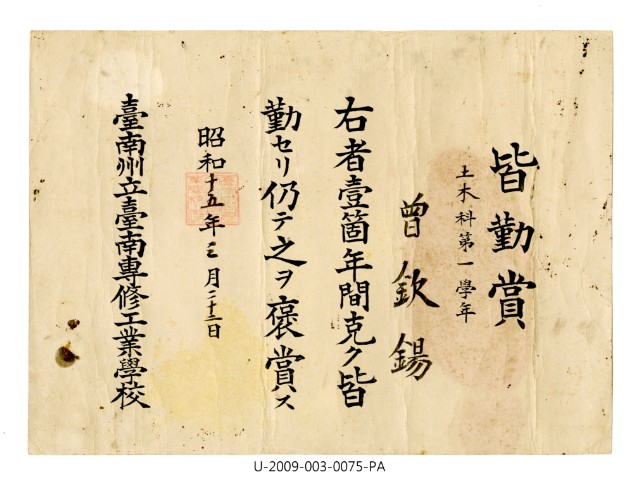 皆勤賞
土木科第一學年
曾欽錫
右者壹箇年間克ク皆
勤セリ仍テ之ヲ褒賞ス
昭和十五年三月二十三日
臺南州立臺南專修工業學校
U-2009-003-0075-PA